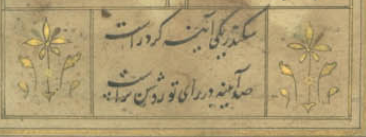 سکندر یکی آینه کرد راست
صد آیینه در رای تو روشن تراست